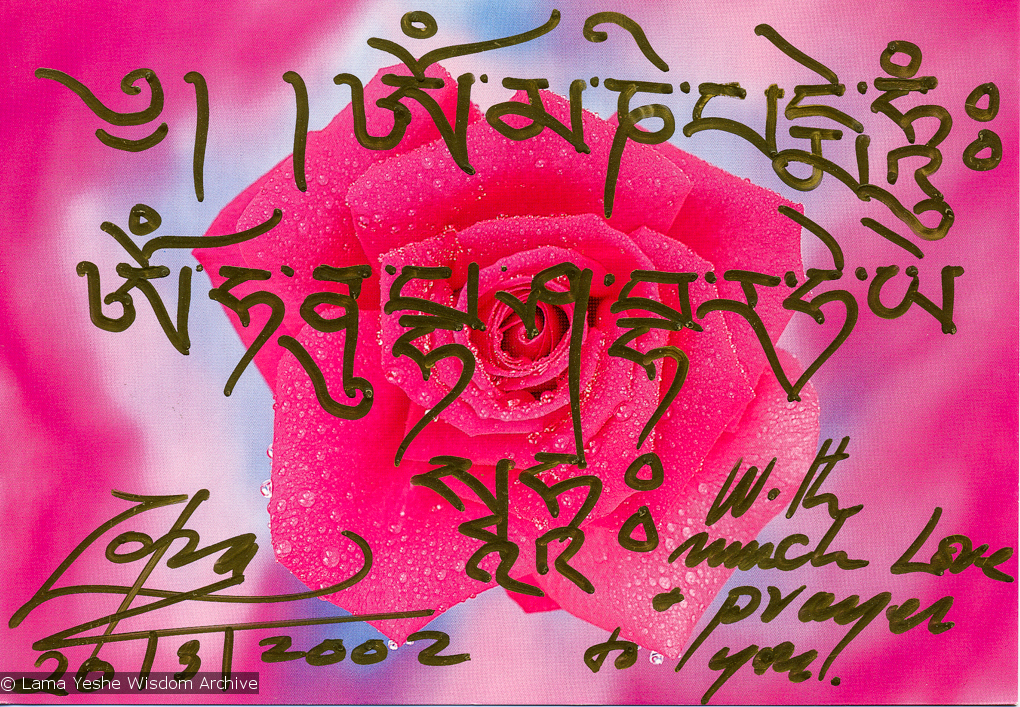 ༄། །ཨོཾ་མ་ཎི་པདྨེ་ཧཱུྃ༔
ཨོཾ་ཧ་ནུ་པྷ་ཤ་བྷ་ར་ཧེ་ཡེ
སྭཱཧཱ༔
Zopa
20/3/2002
With
much Love
+ prayer
to you!
© Lama Yeshe Wisdom Archive